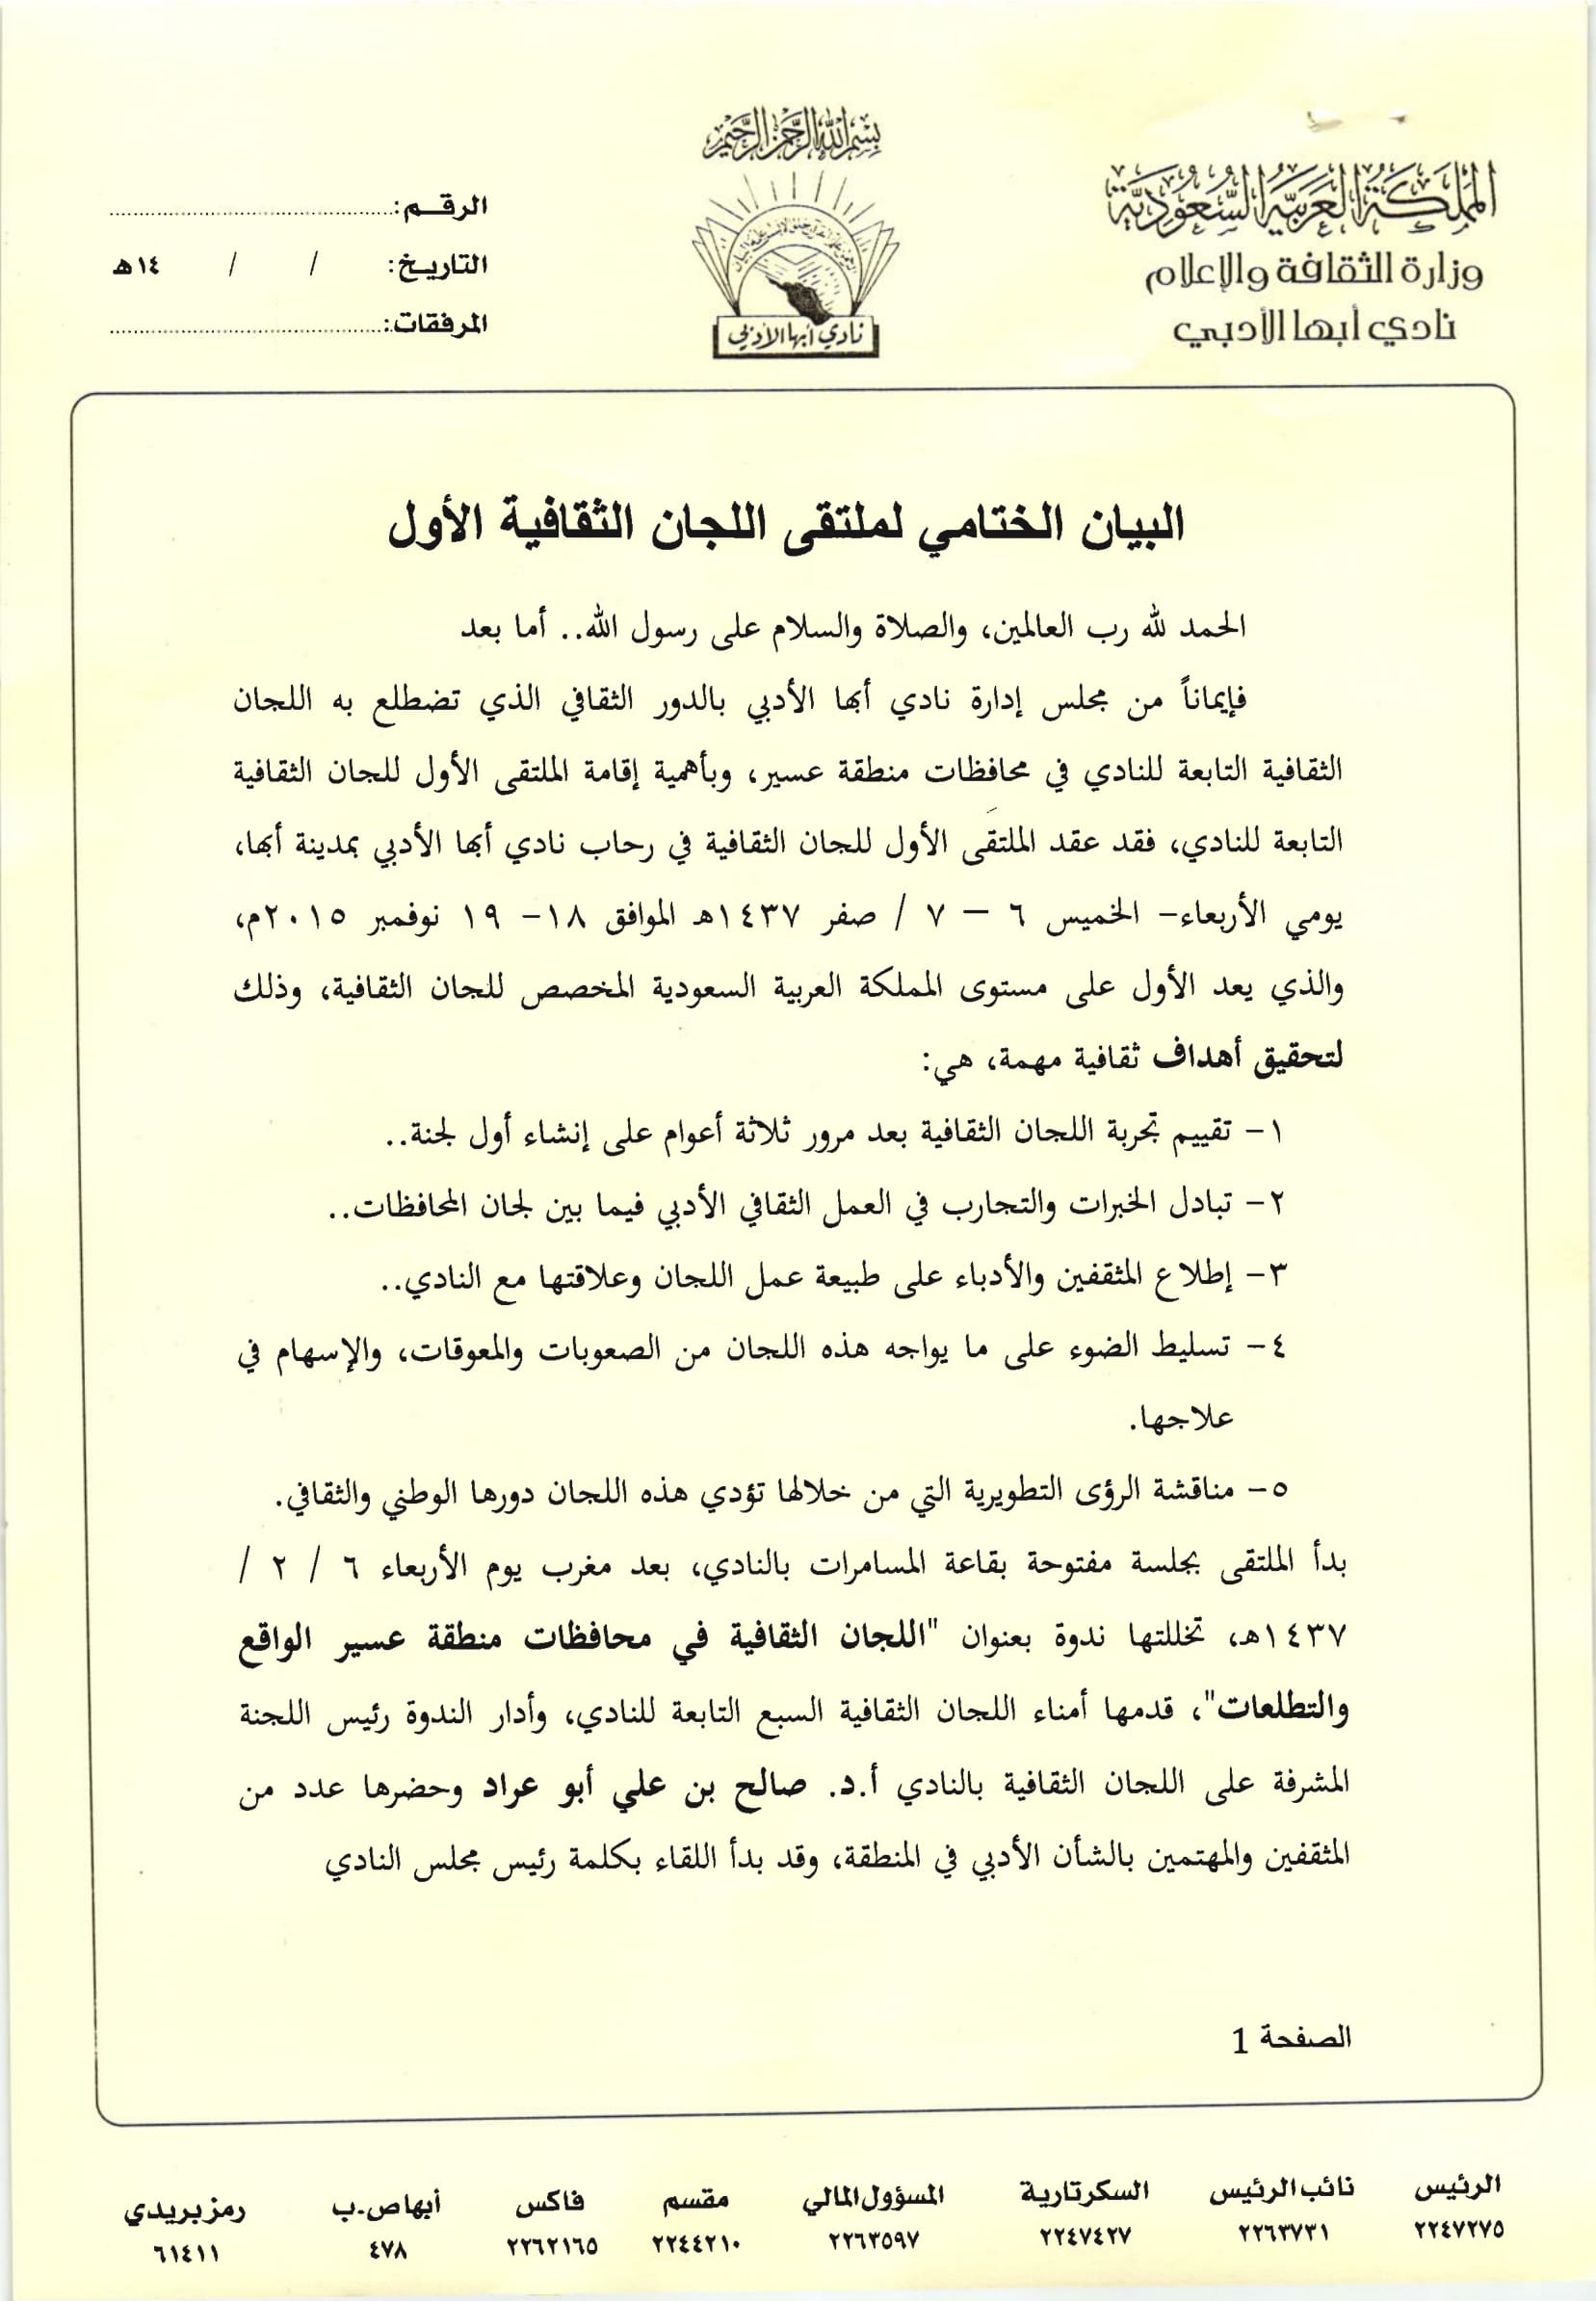 بسم الله الرحمن الرحيم
المملكة العربية السعودية
وزارة الثقافة والإعلام
نادي أبها الأدبي
نادي أبها الأدبي
الرقـم:
التاريخ: / / ١٤هـ
المرفقات:
البيان الختامي لملتقى اللجان الثقافية الأول
الحمد لله رب العالمين، والصلاة والسلام على رسول الله.. أما بعد
فإيماناً من مجلس إدارة نادي أبها الأدبي بالدور الثقافي الذي تضطلع به اللجان
الثقافية التابعة للنادي في محافظات منطقة عسير، وبأهمية إقامة الملتقى الأول للجان الثقافية
التابعة للنادي، فقد عقد الملتقى الأول للجان الثقافية في رحاب نادي أبها الأدبي بمدينة أبها،
يومي الأربعاء- الخميس ٦ – ٧ / صفر ١٤٣٧هـ الموافق ١٨- ١٩ نوفمبر ٢٠١٥م،
والذي يعد الأول على مستوى المملكة العربية السعودية المخصص للجان الثقافية، وذلك
لتحقيق أهداف ثقافية مهمة، هي:
١- تقييم تجربة اللجان الثقافية بعد مرور ثلاثة أعوام على إنشاء أول لجنة..
٢- تبادل الخبرات والتجارب في العمل الثقافي الأدبي فيما بين لجان المحافظات..
٣- إطلاع المثقفين والأدباء على طبيعة عمل اللجان وعلاقتها مع النادي..
٤- تسليط الضوء على ما يواجه هذه اللجان من الصعوبات والمعوقات، والإسهام في
علاجها.
٥- مناقشة الرؤى التطويرية التي من خلالها تؤدي هذه اللجان دورها الوطني والثقافي.
بدأ الملتقى بجلسة مفتوحة بقاعة المسامرات بالنادي، بعد مغرب يوم الأربعاء ٦ / ٢ /
١٤٣٧هـ، تخللتها ندوة بعنوان "اللجان الثقافية في محافظات منطقة عسير الواقع
والتطلعات"، قدمها أمناء اللجان الثقافية السبع التابعة للنادي، وأدار الندوة رئيس اللجنة
المشرفة على اللجان الثقافية بالنادي أ.د. صالح بن علي أبو عراد وحضرها عدد من
المثقفين والمهتمين بالشأن الأدبي في المنطقة، وقد بدأ اللقاء بكلمة رئيس مجلس النادي
الصفحة 1
الرئيس نائب الرئيس السكرتارية المسؤول المالي مقسم فاكس أبها ص.ب رمز بريدي
٢٢٤٧٢٧٥ ٢٢٦٣٧٣١ ٢٢٤٧٤٢٧ ٢٢٦٣٥٩٧ ٢٢٤٤٢١٠ ٢٢٦٢١٦٥ ٤٧٨ ٦١٤١١